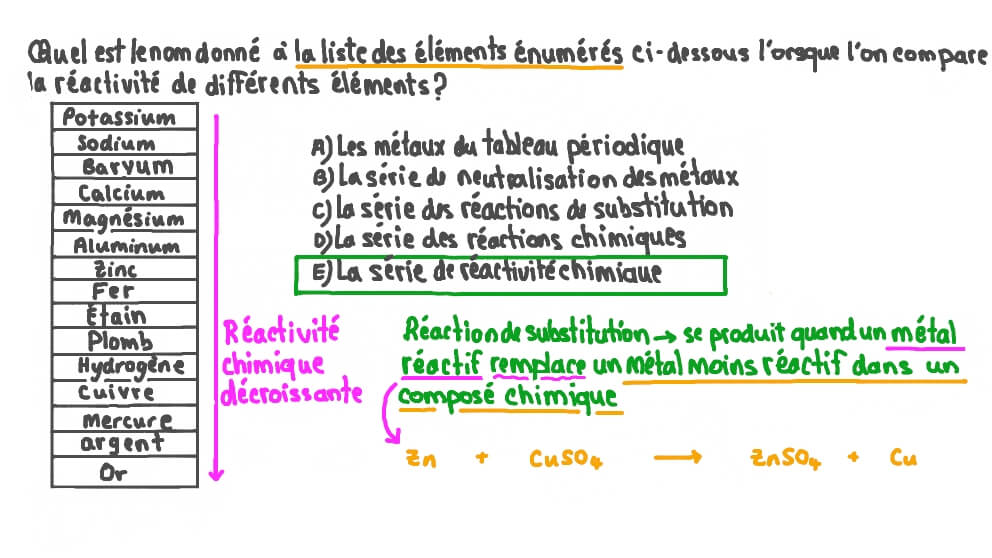 Quel est le nom donné à la liste des éléments énumérés ci-dessous l'orsque l'on compare
la réactivité de différents éléments?
Potassium
Sodium
Baryum
Calcium
Magnésium
Aluminum
Zinc
Fer
Étain
Plomb
Hydrogène
Cuivre
Mercure
argent
Or
A) Les métaux du tableau périodique
B) La série de neutralisation des métaux
C) La série des réactions de substitution
D) La série des réactions chimiques
E) La série de réactivité chimique
Réactivité
chimique
décroissante
Réaction de substitution → se produit quand un métal
réactif remplace un métal moins réactif dans un
composé chimique
Zn + CuSO₄ → ZnSO₄ + Cu